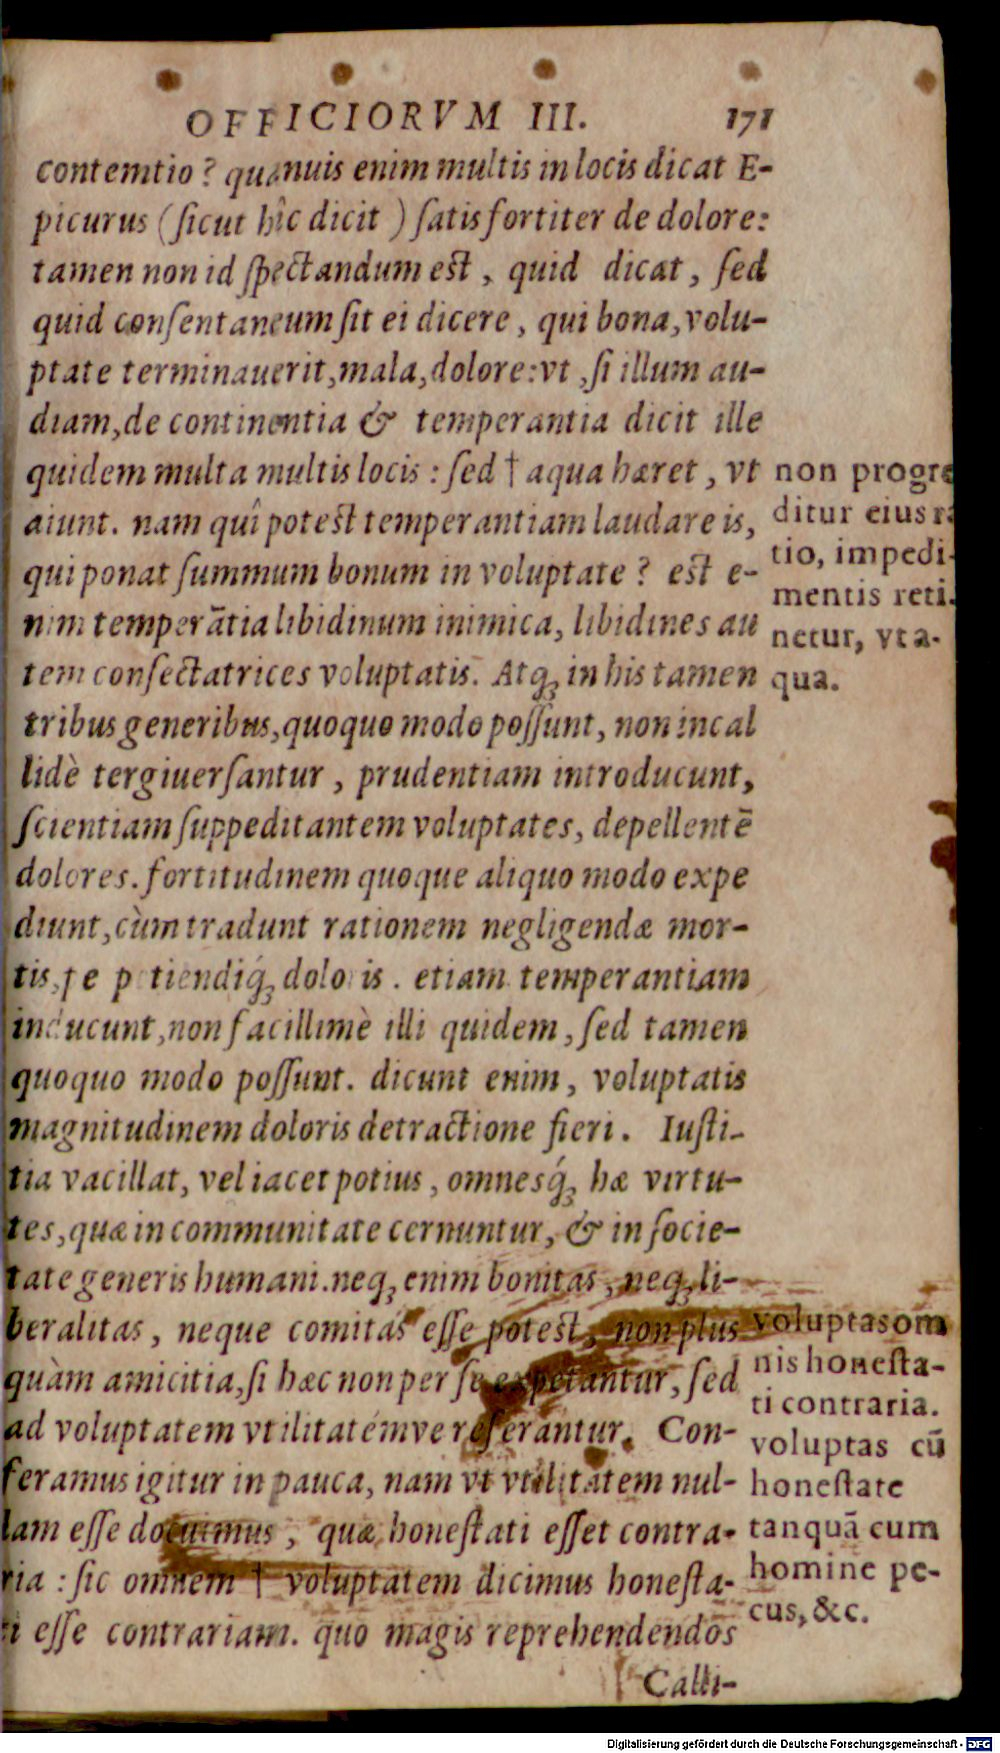 OFFICIORVM III. 171
contemtio? quanuis enim multis in locis dicat E-
picurus (ſicut hîc dicit) ſatis fortiter de dolore:
tamen non id ſpectandum est, quid dicat, ſed
quid conſentaneum ſit ei dicere, qui bona, volu-
ptate terminauerit, mala, dolore: vt, ſi illum au-
diam, de continentia & temperantia dicit ille
quidem multa multis locis: ſed † aqua hæret, vt
aiunt. nam quî potest temperantiam laudare is,
qui ponat ſummum bonum in voluptate? est e-
nim temperātia libidinum inimica, libidines au
tem conſectatrices voluptatis. Atq; in his tamen
tribus generibus, quoquo modo poſſunt, non incal
lidè tergiuerſantur, prudentiam introducunt,
ſcientiam ſuppeditantem voluptates, depellentē
dolores. fortitudinem quoque aliquo modo expe
diunt, cùm tradunt rationem negligendæ mor-
tis, tiendiq́; etiam temperantiam
inducunt, non facillimè illi quidem, ſed tamen
quoquo modo poſſunt. dicunt enim, voluptatis
magnitudinem doloris detractione fieri. Iuſti-
tia vacillat, vel iacet potius, omnesq́; hæ virtu-
tes, quæ in communitate cernuntur, & in ſocie-
tate generis humani. neq; enim bonitas, neq; li-
beralitas, neque comitas eſſe potest, non plus
quàm amicitia, ſi hæc non per ſe expetantur, ſed
ad voluptatem vtilitatémve referantur. Con-
feramus igitur in pauca, nam vt vtilitatem nul-
lam eſſe docuimus, quæ honeſtati eſſet contra-
ria: ſic omnem † voluptatem dicimus honeſta-
ti eſſe contrariam. quo magis reprehendendos
Calli-
non progre
ditur eius ra
tio, impedi-
mentis reti-
netur, vt a-
qua.
voluptas om
nis honeſta-
ti contraria.
voluptas cū
honeſtate
tanquā cum
homine pe-
cus, &c.
Digitalisierung gefördert durch die Deutsche Forschungsgemeinschaft - DFG